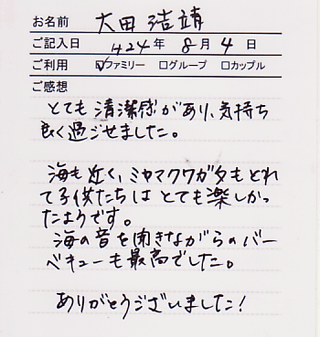 お名前 太田
ご記入日 H24年 8月 4日
ご利用 ☑ファミリー □グループ □カップル
ご感想
とても清潔感があり、気持ち
良く過ごせました。
海も近く、ミヤマクワガタもとれ
て子供たちはとても楽しかっ
たようです。
海の音を聞きながらのバー
ベキューも最高でした。
ありがとうございました!